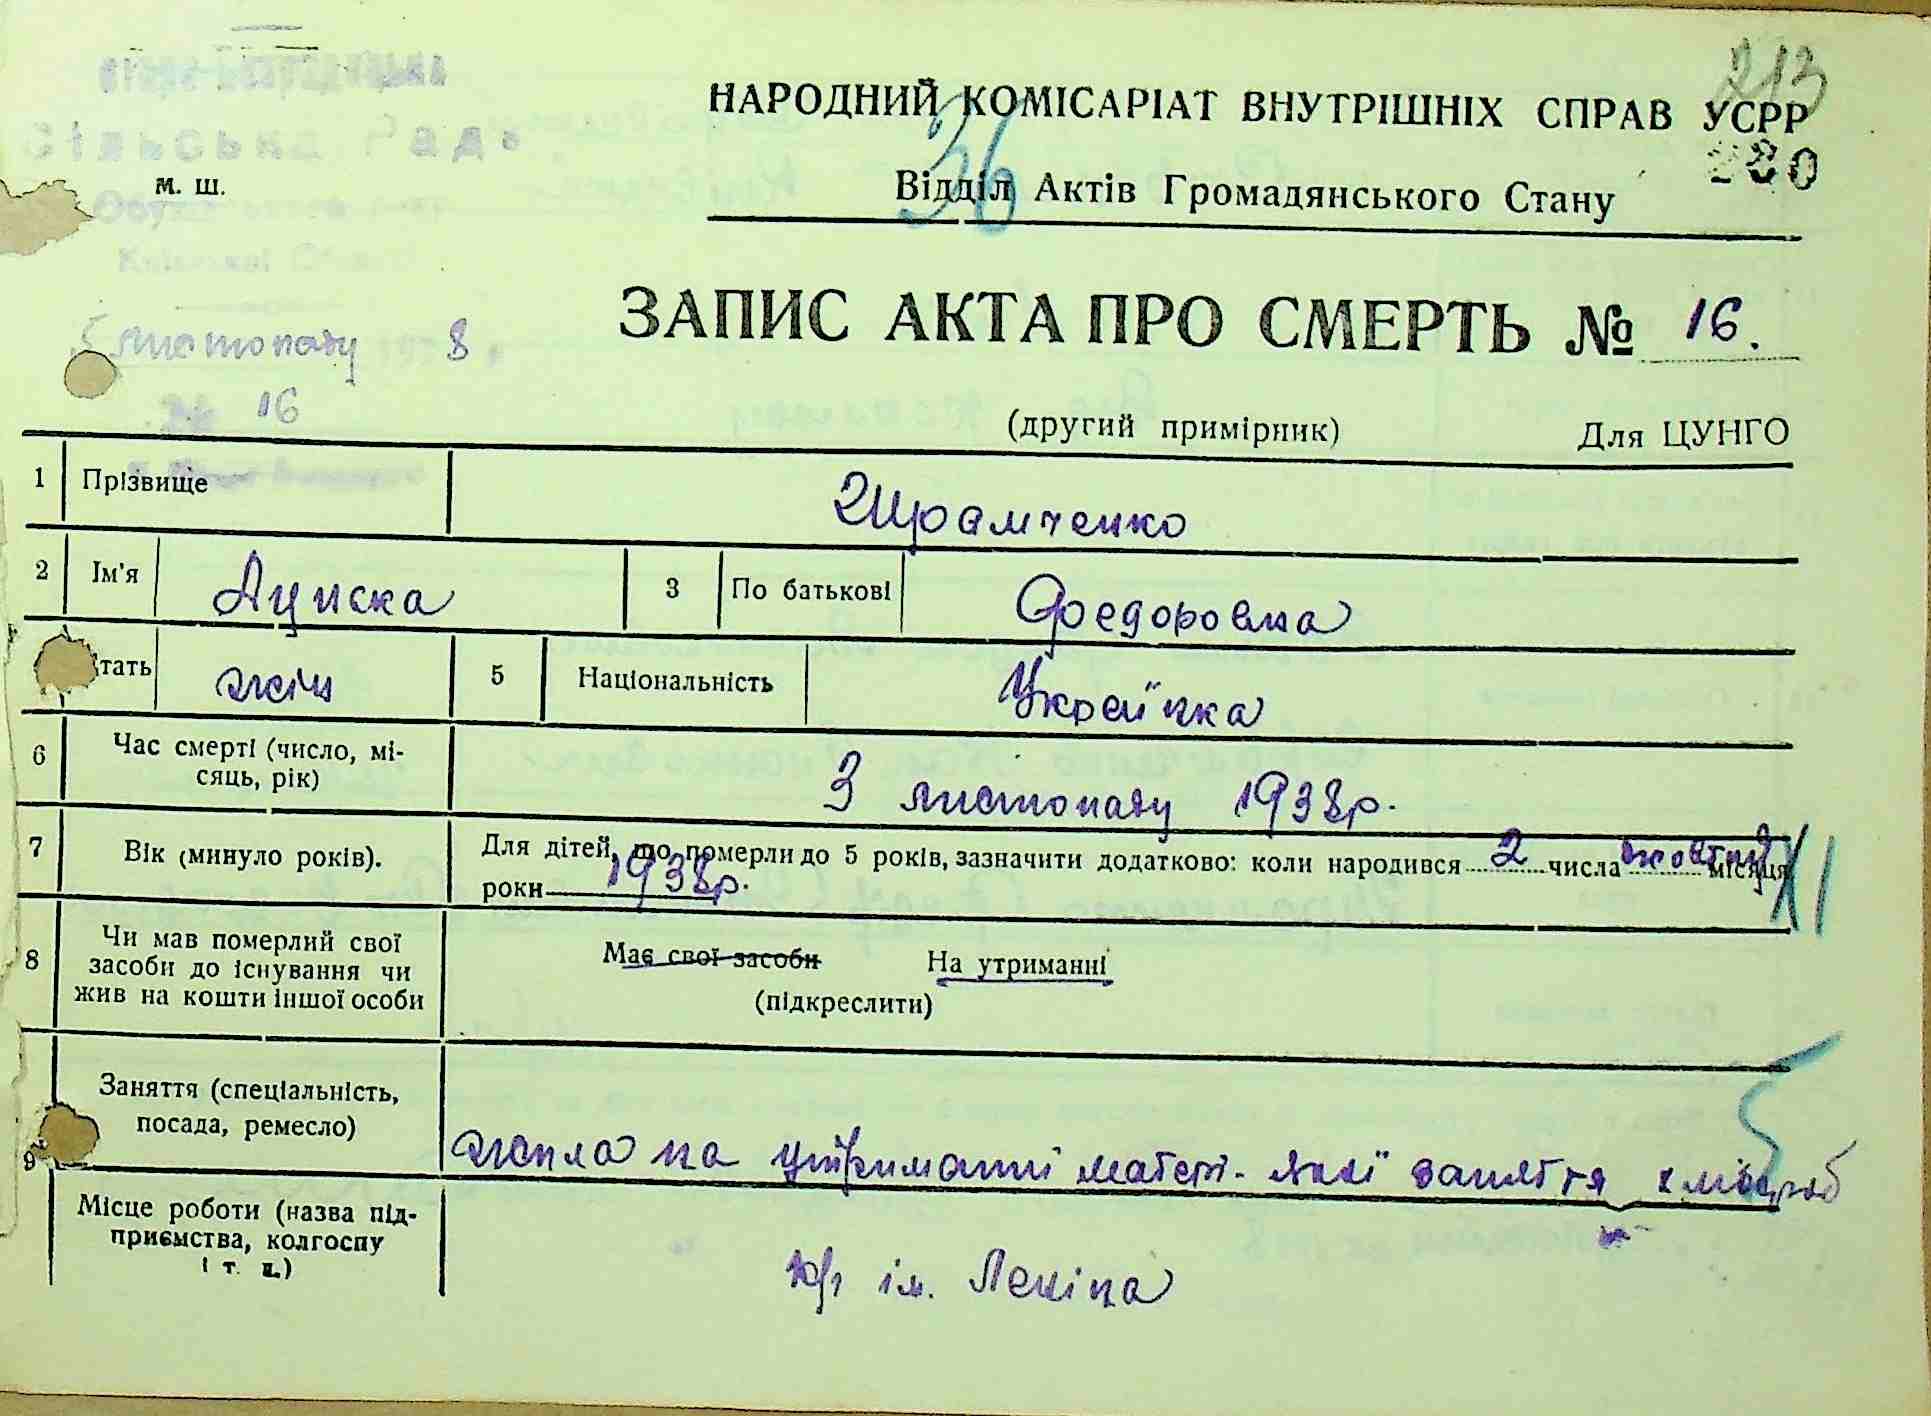 213
НАРОДНИЙ КОМІСАРІАТ ВНУТРІШНІХ СПРАВ УСРР
36
Відділ Актів Громадянського Стану
Сільська Рада
м. ш.
ЗАПИС АКТА ПРО СМЕРТЬ № 16.
5 листопаду 1938 р.
16
(другий примірник) Для ЦУНГО
1 Прізвище Шрамченко
2 Ім'я 3 По батькові Федоровна
тать жін 5 Національність Українка
6 Час смерті (число, мі-
сяць, рік) 3 листопаду 1938р.
7 Вік (минуло років). Для дітей, що померли до 5 років, зазначити додатково: коли народився 2 числа жовтня місяця
роки 1938р. XI
8 Чи мав померлий свої
засоби до існування чи
жив на кошти іншої особи
Має свої засоби На утриманні
(підкреслити)
Заняття (спеціальність,
посада, ремесло)
9 жила на утриманні матері. якої заняття
5
Місце роботи (назва під-
приємства, колгоспу
і т. п.)
к/г ім. Леніна